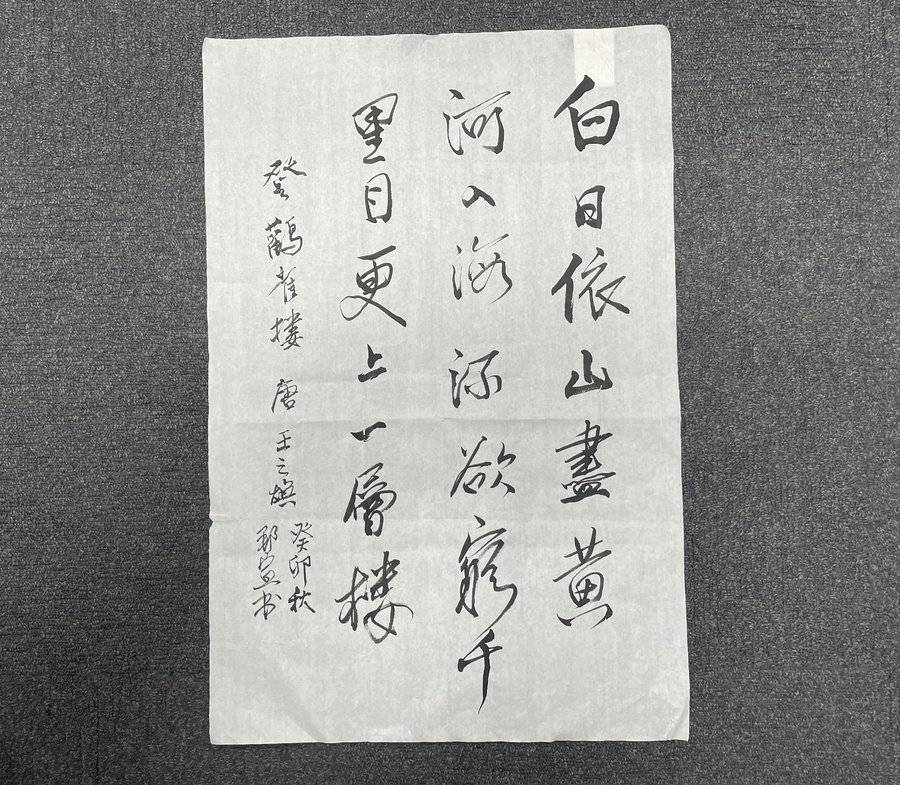 白日依山盡黄
河入海流欲窮千
里目更上一層楼
登鸛雀楼 唐 王之渙
癸卯秋
宣书